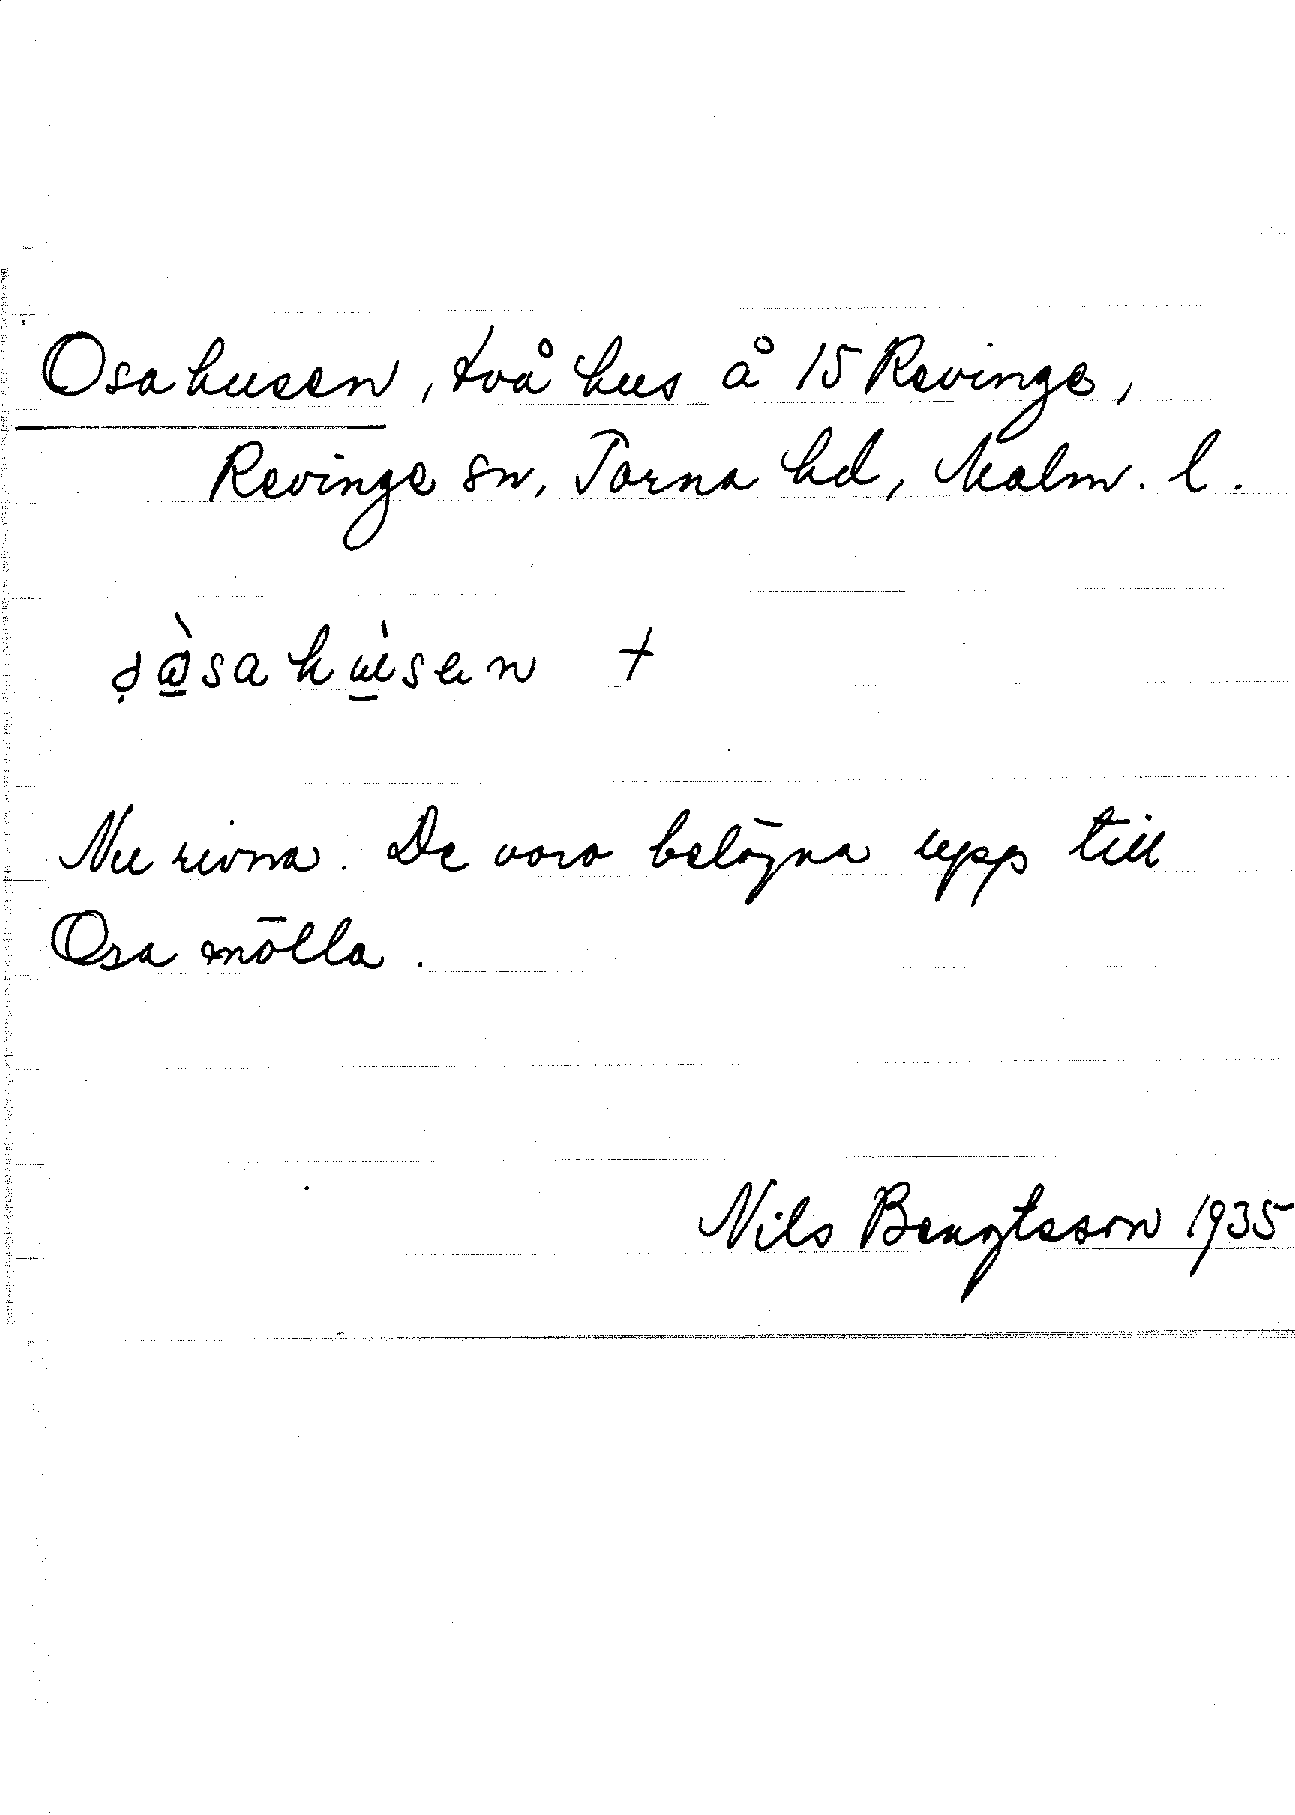 Osahusen, två hus å 15 Revinge,
Revinge sn, Torna hd, Malm. l.
+
Nu rivna. De voro belägna upp till
Osa mölla.
Nils Bengtsson 1935